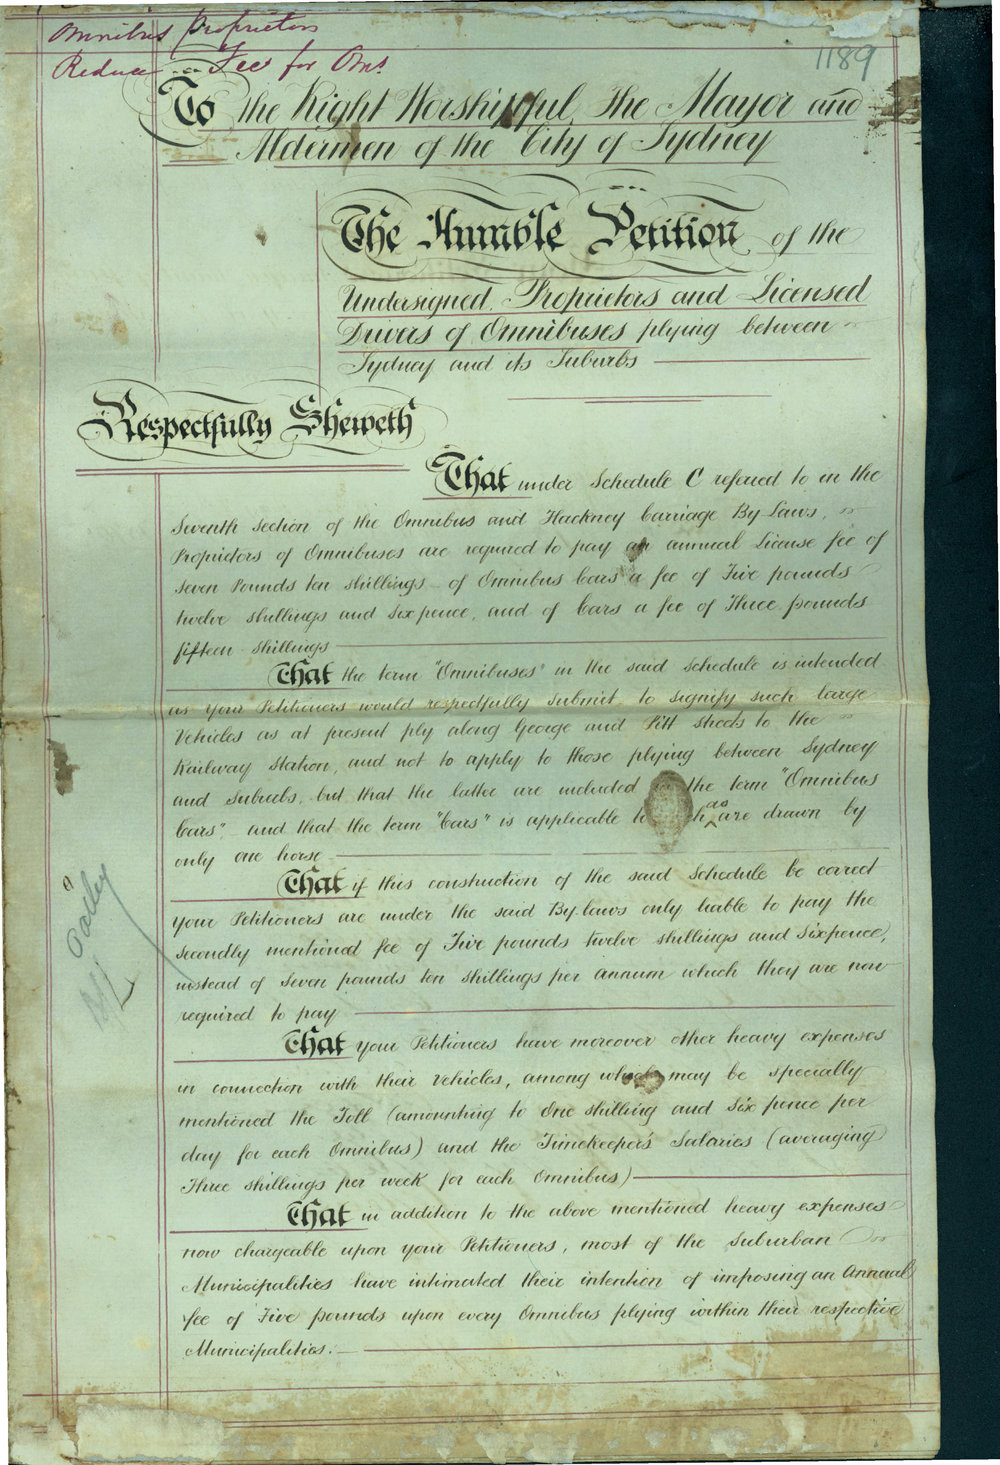 Omnibus Proprietors
Reduce Fee for Oms.
1189
To the Right Worshipful, The Mayor and
Aldermen of the City of Sydney
The Humble Petition of the
Undersigned Proprietors and Licensed
Drivers of Omnibuses plying between
Sydney and its Suburbs
Respectfully Sheweth
That under Schedule C referred to in the
Seventh Section of the Omnibus and Hackney Carriage By Laws,
Proprietors of Omnibuses are required to pay an annual License fee of
Seven Pounds ten shillings - of Omnibus Cars a fee of Five pounds
twelve shillings and six pence, and of Cars a fee of Three pounds
fifteen shillings
That the term "Omnibuses" in the said Schedule is intended
as your Petitioners would respectfully submit to signify such large
Vehicles as at present ply along George and Pitt streets to the
Railway Station, and not to apply to those plying between Sydney
and Suburbs, but that the latter are included the term "Omnibus
Cars", and that the term "Cars" is applicable to h as are drawn by
only one horse
That if this construction of the said Schedule be correct
your Petitioners are under the said By-laws only liable to pay the
Secondly mentioned fee of Five pounds twelve shillings and Sixpence,
instead of Seven pounds ten shillings per annum which they are now
required to pay
That your Petitioners have moreover other heavy expenses
in connection with their Vehicles, among which may be specially
mentioned the Toll (amounting to One shilling and Six pence per
day for each Omnibus) and the Timekeeper's Salaries (averaging
Three shillings per week for each Omnibus)
That in addition to the above mentioned heavy expenses
now chargeable upon your Petitioners, most of the Suburban
Municipalities have intimated their intention of imposing an Annual
fee of Five pounds upon every Omnibus plying within their respective
Municipalities.